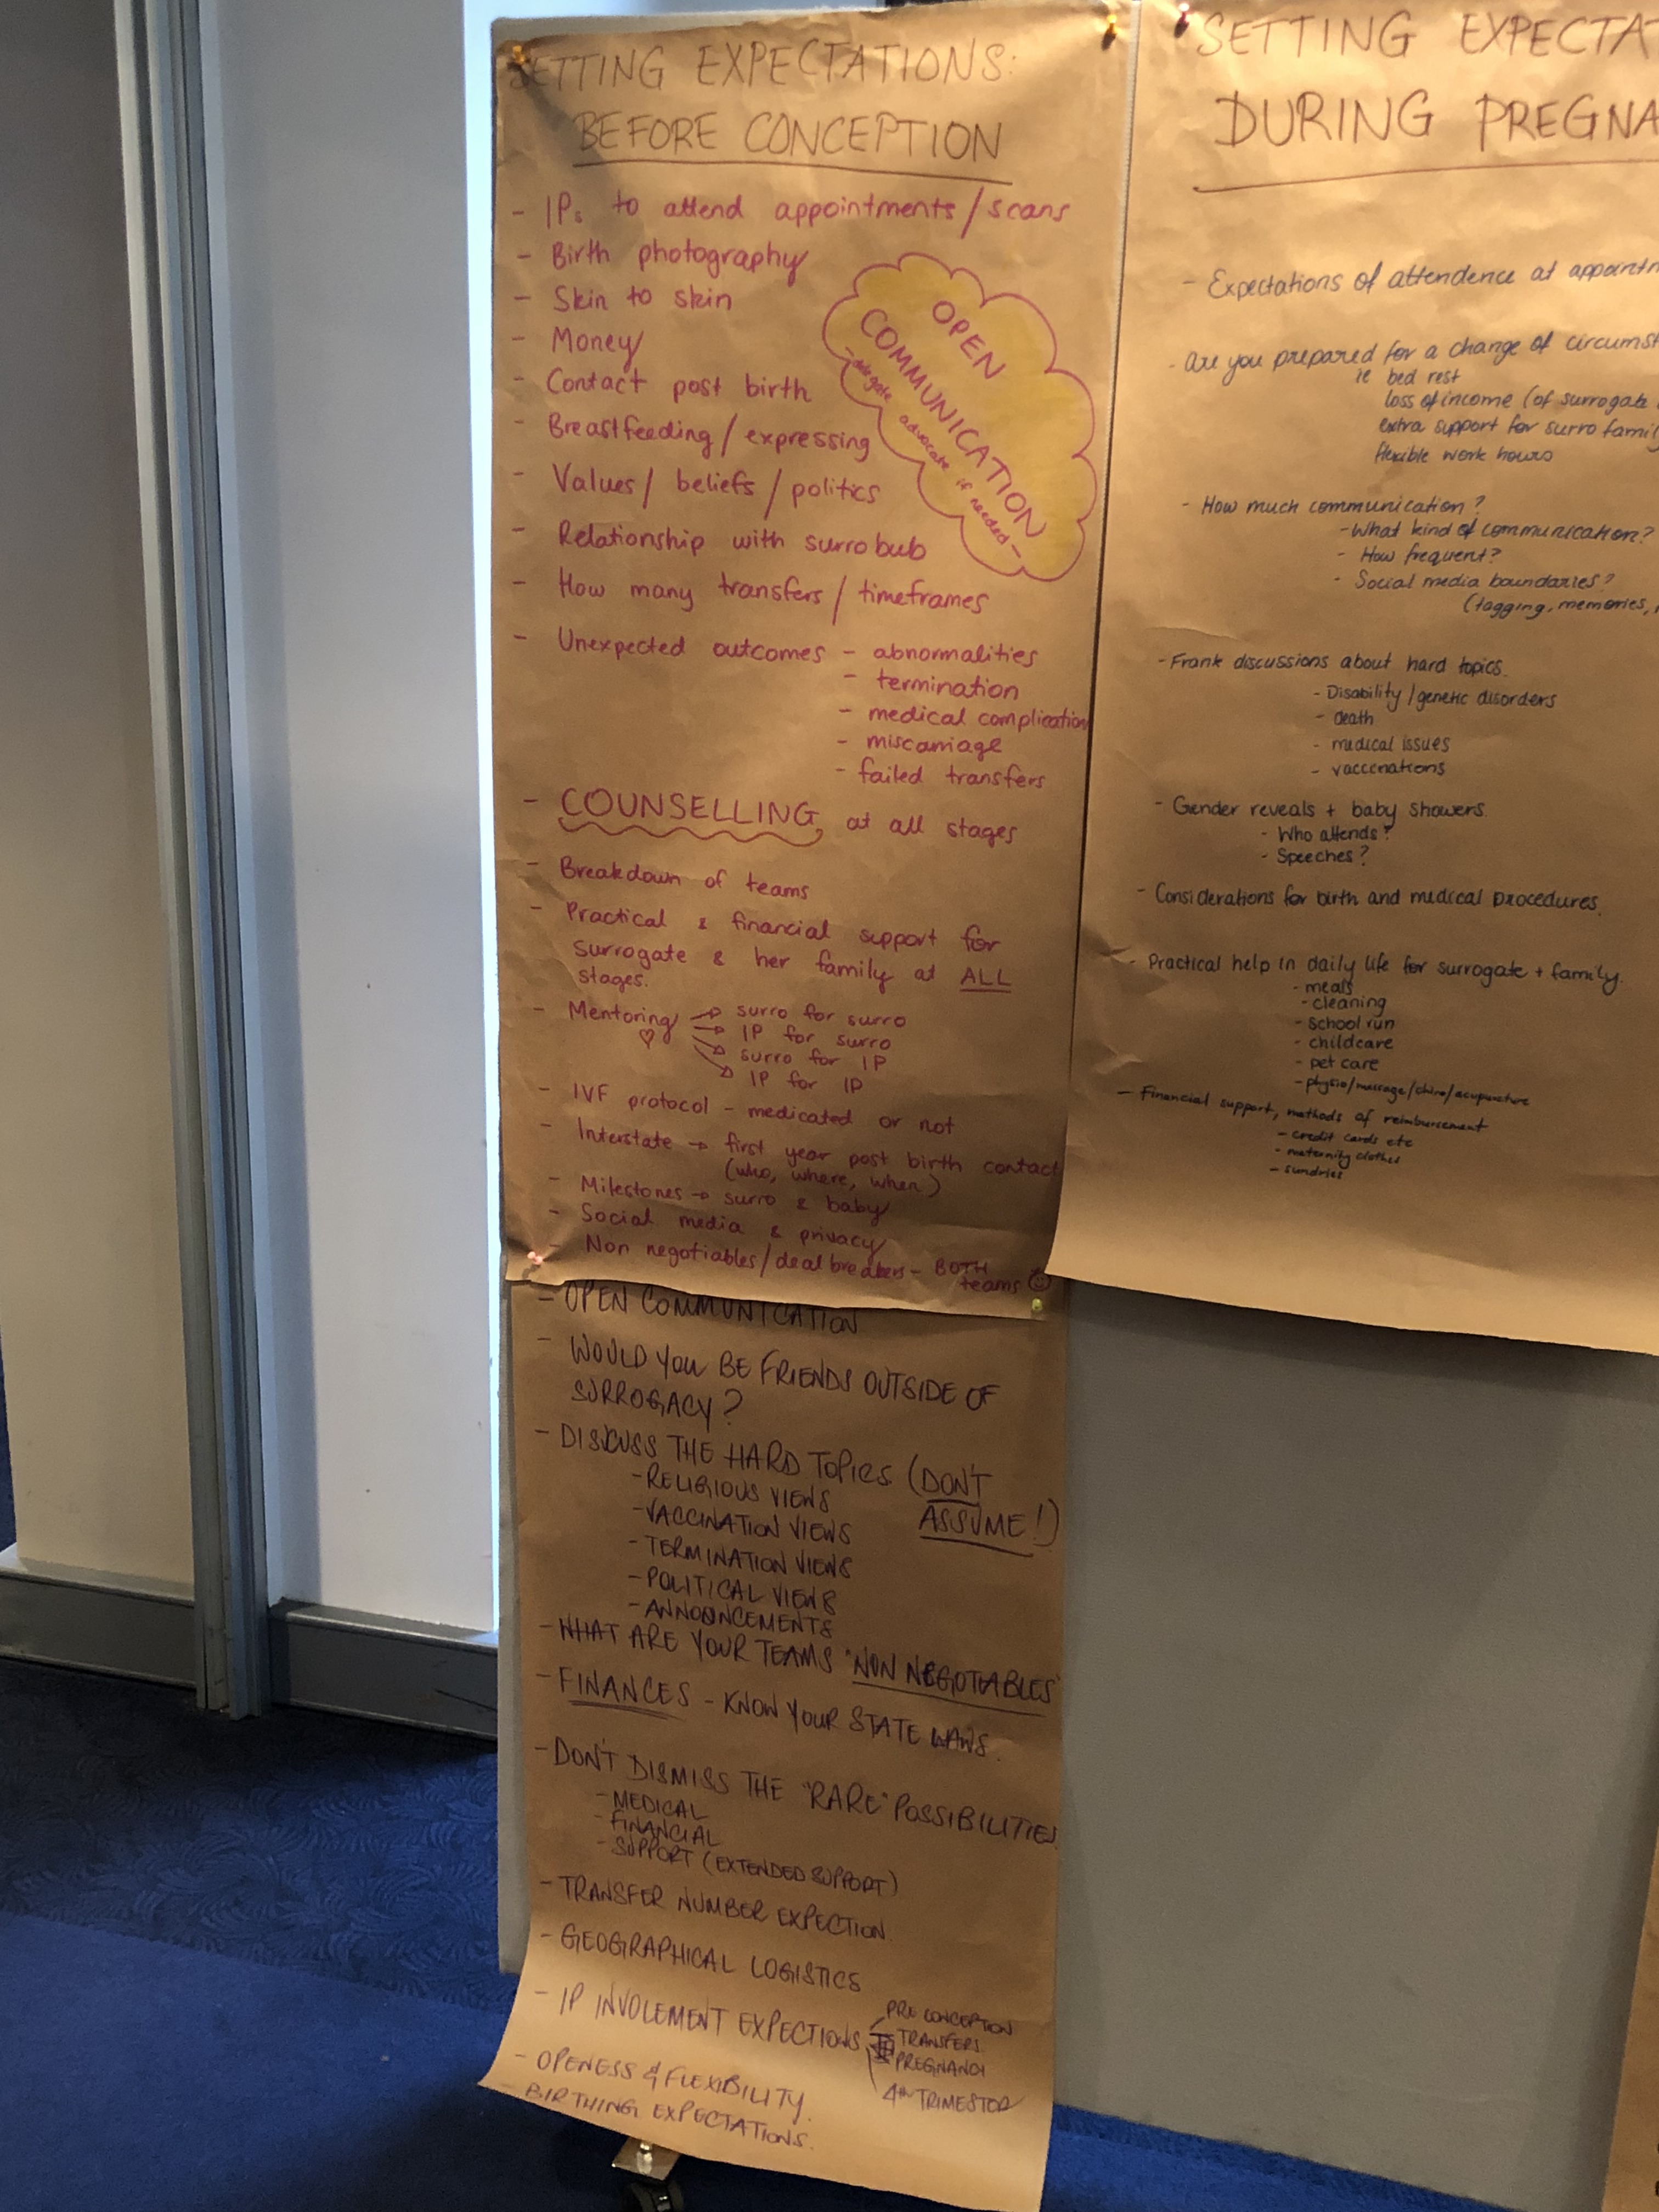 SETTING EXPECTATIONS:
BEFORE CONCEPTION
- IPs to attend appointments/scans
- Birth photography
- Skin to skin
- Money
- Contact post birth
- Breastfeeding/expressing
- Values/ beliefs / politics
- Relationship with surrobub
- How many transfers / timeframes
- Unexpected outcomes - abnormalities
- termination
- medical complication
- miscarriage
- failed transfers
OPEN
COMMUNICATION
- delegate advocate if needed -
- COUNSELLING at all stages
- Breakdown of teams
- Practical & financial support for
surrogate & her family at ALL
stages.
- Mentoring → surro for surro
→ IP for surro
→ surro for IP
→ IP for IP
♡
- IVF protocol - medicated or not
- Interstate → first year post birth contact
(who, where, when)
- Milestones → surro & baby
- Social media & privacy
- Non negotiables/deal breakers - BOTH
teams ☺
- OPEN COMMUNICATION
- WOULD YOU BE FRIENDS OUTSIDE OF
SURROGACY?
- DISCUSS THE HARD TOPICS (DON'T
ASSUME!)
- RELIGIOUS VIEWS
- VACCINATION VIEWS
- TERMINATION VIEWS
- POLITICAL VIEWS
- ANNOUNCEMENTS
- WHAT ARE YOUR TEAMS "NON NEGOTIABLES"
- FINANCES - KNOW YOUR STATE LAWS.
- DON'T DISMISS THE "RARE" POSSIBILITIES
- MEDICAL
- FINANCIAL
- SUPPORT (EXTENDED SUPPORT)
- TRANSFER NUMBER EXPECTION
- GEOGRAPHICAL LOGISTICS
- IP INVOLEMENT EXPECTIONS
PRE CONCEPTION
TRANSFERS
PREGNANCY
4TH TRIMESTOR
- OPENESS & FLEXIBILITY.
- BIRTHING EXPECTATIONS.
SETTING EXPECTA
DURING PREGNA
- Expectations of attendence at appointm
- Are you prepared for a change of circumst
ie bed rest
loss of income (of surrogate
extra support for surro famil
flexible work hours
- How much communication?
- What kind of communication?
- How frequent?
- Social media boundaries?
(tagging, memories,
- Frank discussions about hard topics.
- Disability/genetic disorders
- death
- medical issues
- vaccenations
- Gender reveals + baby showers.
- Who attends?
- Speeches?
- Considerations for birth and medical procedures.
- Practical help in daily life for surrogate + family.
- meals
- cleaning
- school run
- childcare
- pet care
- physio/massage/chiro/acupuncture
- Financial support, methods of reimbursement
- credit cards etc
- maternity clothes
- sundries